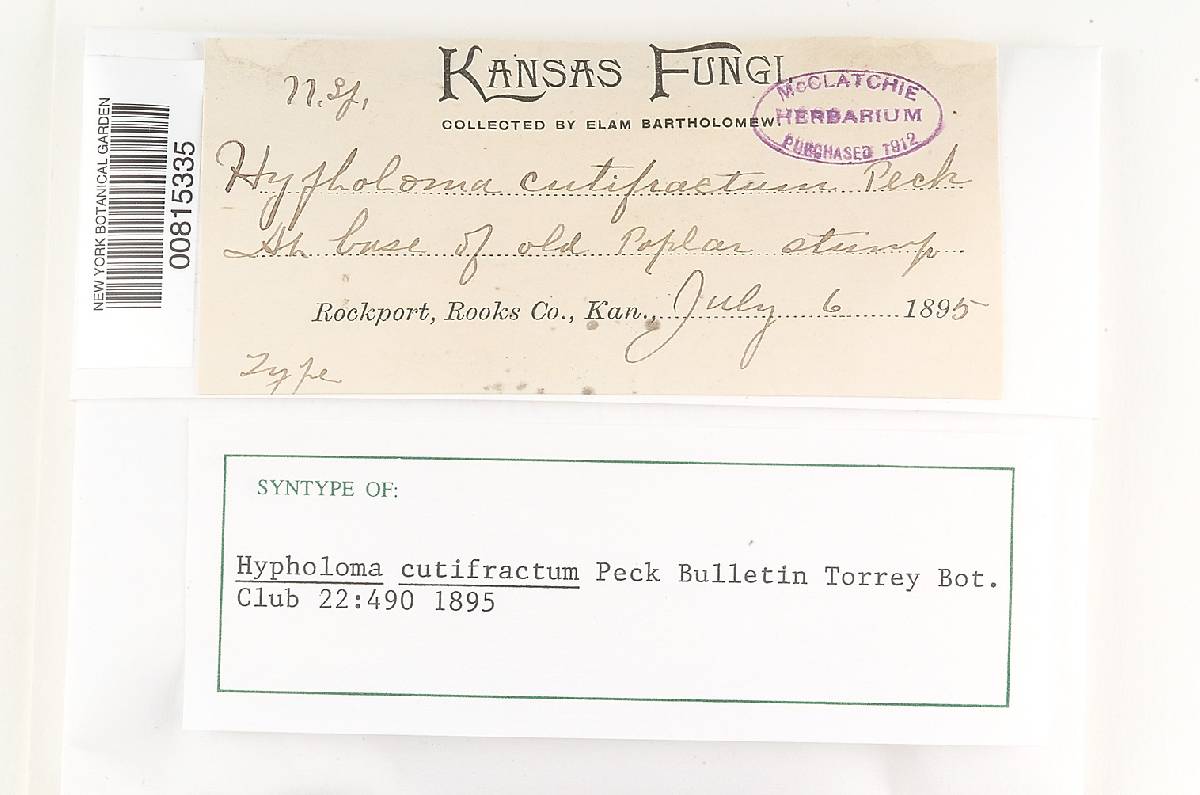 NEW YORK BOTANICAL GARDEN
00815335
N. Sp.
KANSAS FUNGI.
COLLECTED BY ELAM BARTHOLOMEW.
McCLATCHIE
HERBARIUM
PURCHASED 1912
Hypholoma cutifractum Peck
At base of old Poplar stump
Rockport, Rooks Co., Kan., July 6 1895
Type
SYNTYPE OF:
Hypholoma cutifractum Peck Bulletin Torrey Bot.
Club 22:490 1895